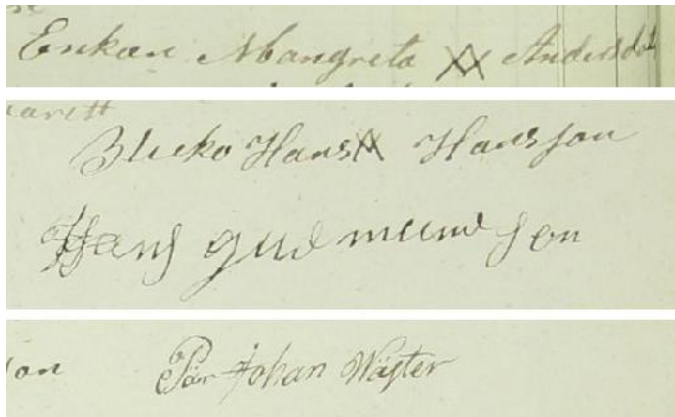 Enkan Mangreta XX Andersdot
Blecko Hans XX Hansson
Hans gudmundson
on Pär Johan Wägter